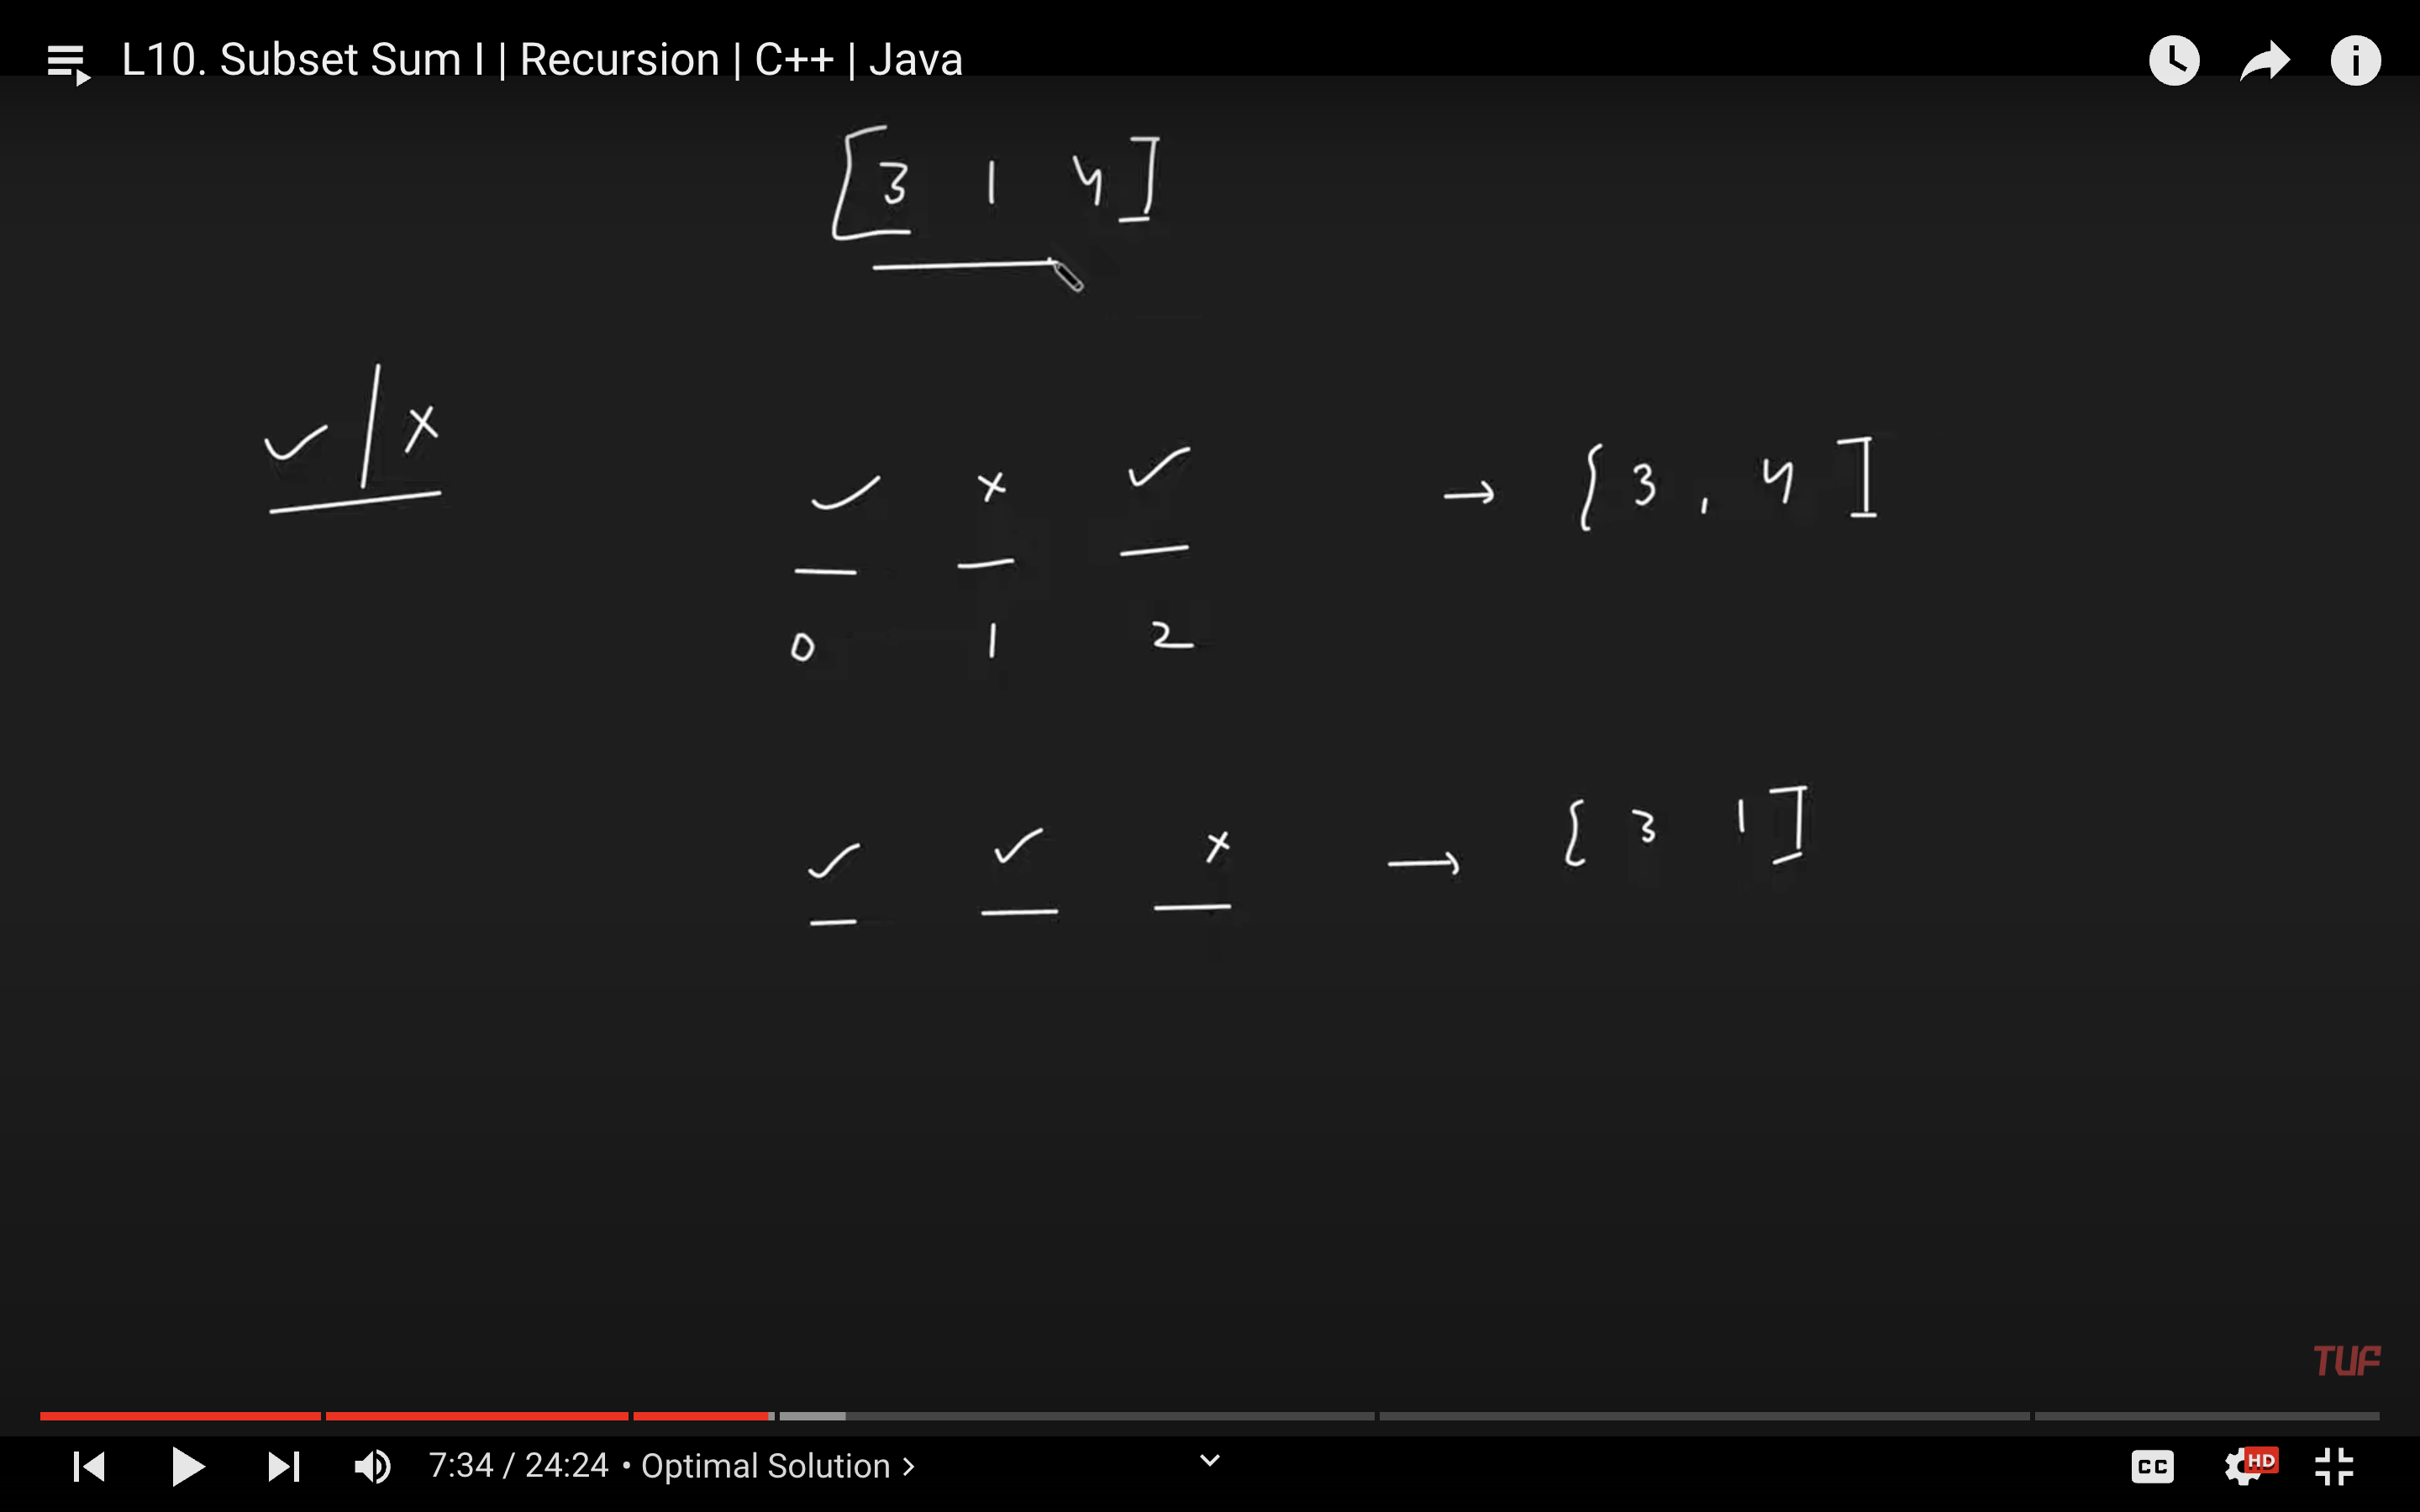 L10. Subset Sum I | Recursion | C++ | Java
[3 1 4]
✓ / x
✓ x ✓ → { 3 , 4 ]
0 1 2
✓ ✓ x → { 3 1 ]
TUF
7:34 / 24:24 • Optimal Solution >
CC HD